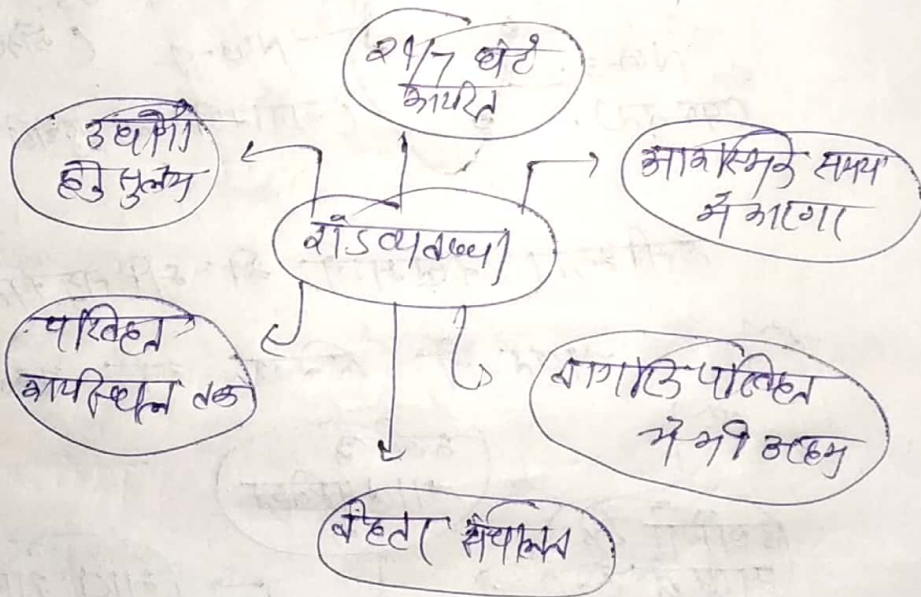 24/7 घंटे
कार्यरत
उद्योगों
हेतु सुलभ
आकस्मिक समय
में कारगर
रोड व्यवस्था
परिवहन
कार्यस्थल तक
नागरिक परिवहन
में भी अहम
बेहतर संचालन